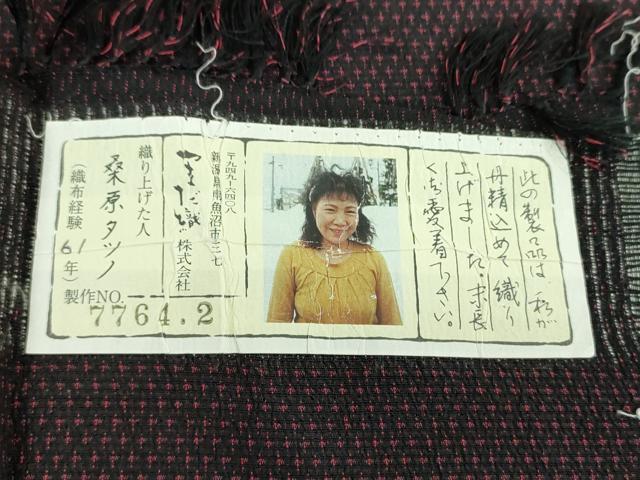 此の製品は、私が
丹精込めて織り
上げました。末長
くご愛着下さい。
〒九四九ー六四〇八
新潟県南魚沼市三七
やまだ織株式会社
織り上げた人
桑原タツノ
(織布経験61年)
製作NO.
7764.2